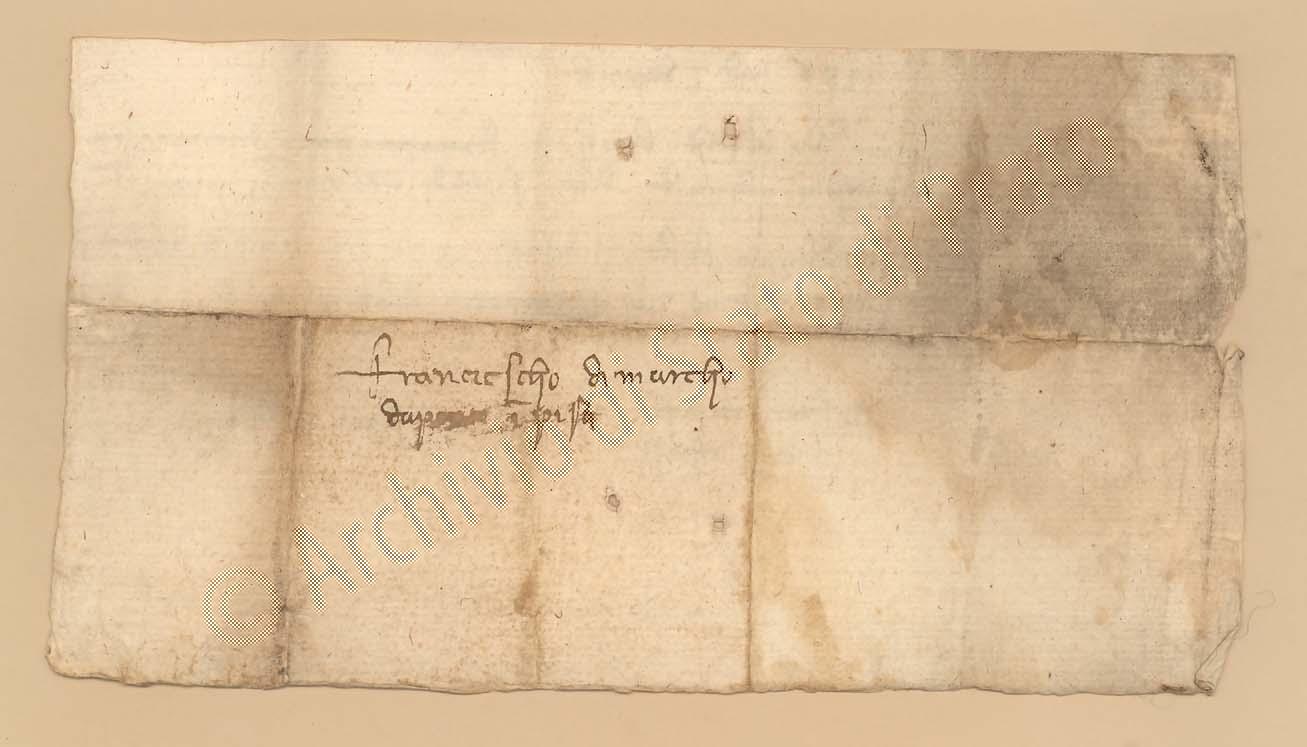 Franciescho di marcho
da p i pisa
© Archivio di Stato di Prato